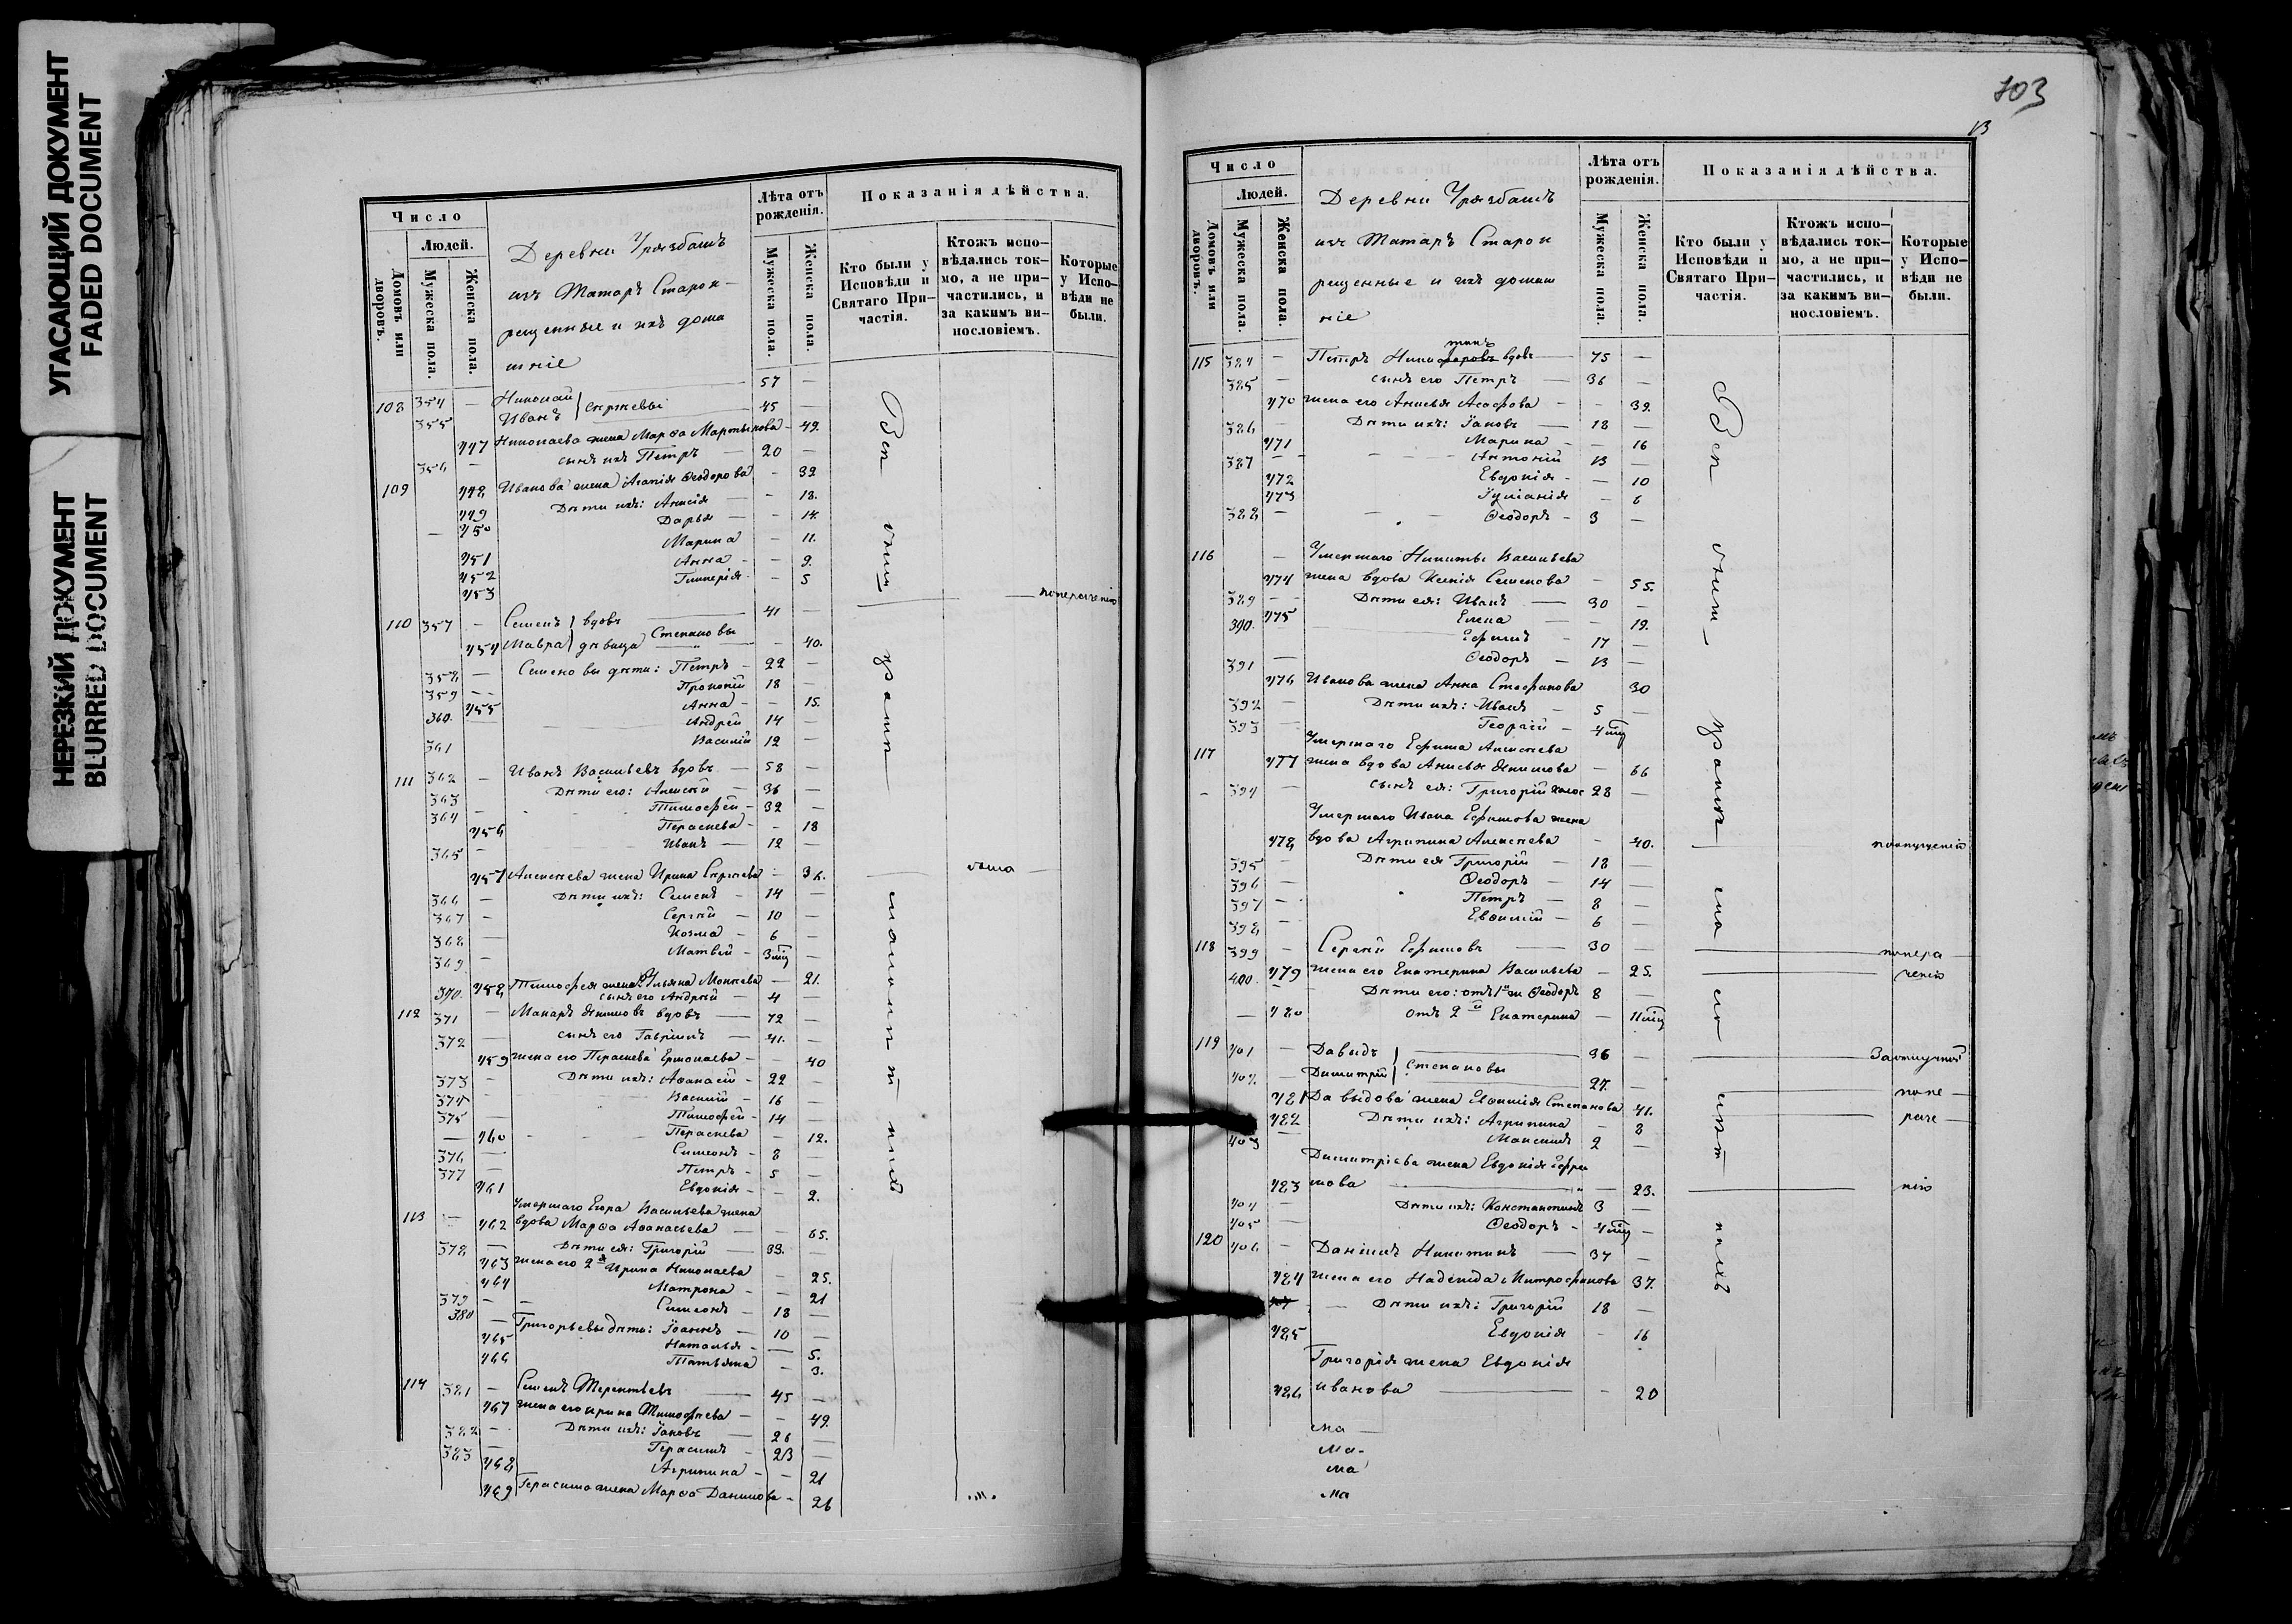 УГАСАЮЩИЙ ДОКУМЕНТ
FADED DOCUMENT
НЕРЕЗКИЙ ДОКУМЕНТ
BLURRED DOCUMENT
Число
Людей.
Домовъ или дворовъ.
Мужеска пола.
Женска пола.
Деревни Урязбашъ
изъ Татаръ Старок-
рещенные и ихъ дома
шніе
Лѣта отъ рожденія.
Мужеска пола.
Женска пола.
Показанія дѣйства.
Кто были у Исповѣди и Святаго Причастія.
Ктожъ исповѣдались токмо, а не причастились, и за какимъ винословіемъ.
Которые у Исповѣди не были.
108 354 — Николай } Сергѣевы — 57 —
355 Иванъ — 45 —
447 Николаева жена Марѳа Мартынова — 49.
356 — сынъ ихъ Петръ — 20 —
109 448 Иванова жена Агапія Ѳеодорова — 39
449 Дѣти ихъ: Анисія — 18.
— 450 Дарья — 14.
451 Марина — 11.
452 Анна — 9.
453 Гликерія — 5
110 357 — Семенъ } вдовъ — 41 — понераченію
454 Мавра } дѣвица Степановы — 40.
358 — Семеновы дѣти: Петръ — 22 —
359 — Прокопій 18 —
455 Анна — 15.
360. — Андрей 14 —
361 Василій 12 —
111 362 — Иванъ Васильевъ вдовъ — 58 —
363 Дѣти его: Алексѣй — 36 —
364 — Тимофей — 32 —
456 Пераскева — 18
365 — Иванъ — 12 —
457 Алексѣева жена Ирина Сергѣева — 36.
366 — Дѣти ихъ: Семенъ — 14 —
367 — Сергѣй — 10 —
368 — Козма — 6 —
369 — Матвей — 3 мѣц —
458 Тимофея жена Ульяна Мокѣева — 21.
370. сынъ его Андрей — 4 —
112 371 — Макаръ Акимовъ вдовъ — 72 —
372 — сынъ его Гавріилъ — 41. —
459 жена его Пераскева Ермолаева — 40
373 — Дѣти ихъ: Аѳанасій — 22 —
374 — Василій — 16 —
375 — Тимофей — 14 —
— 460 Пераскева — 12.
376 — Симеонъ — 8 —
377 — Петръ — 5 —
461 Евдокія — 2.
113 Умершаго Егора Васильева жена
— 462 вдова Марѳа Аѳанасьева — 65.
378 — Дѣти ея: Григорій — 39. —
463 жена его 2я Ирина Николаева — 25.
464 Матрона — 21
379 — Симеонъ — 18 —
380 — Григорьевы дѣти: Іоаннъ — 10 —
465 Наталья — 5.
466 Татьяна — 3.
114 381 — Семенъ Терентьевъ — 45 —
467 жена его Ирина Тимофѣева — 49.
382 — Дѣти ихъ: Іаковъ — 26 —
383 — Герасимъ — 23 —
468 Агрипина — 21
469 Герасима жена Марѳа Данилова — 26
103
13
Число
Людей.
Домовъ или дворовъ.
Мужеска пола.
Женска пола.
Деревни Урязбашъ
изъ Татаръ Старок
рещенные и ихъ домаш
ніе
Лѣта отъ рожденія.
Мужеска пола.
Женска пола.
Показанія дѣйства.
Кто были у Исповѣди и Святаго Причастія.
Ктожъ исповѣдались токмо, а не причастились, и за какимъ винословіемъ.
Которые у Исповѣди не были.
115 384 — Петръ Никифоровъ тинъ вдовъ — 75 —
385 — сынъ его Петръ — 36 —
470 жена его Анисья Асафова — 39.
386 — Дѣти ихъ: Іаковъ — 18 —
471 Марина — 16
387 — Антоній 13 —
472 Евдокія — 10
473 Іуліанія — 6
388 — Ѳеодоръ — 3 —
116 — Умершаго Никиты Васильева
474 жена вдова Ксенія Семенова — 55.
389 — Дѣти ея: Иванъ — 30 —
475 Елена — 19.
390. Ефимъ — 17 —
391 — Ѳеодоръ — 13 —
476 Иванова жена Анна Стефанова 30
392 — Дѣти ихъ: Иванъ — 5 —
393 — Георгій — 4 мѣц
117 Умершаго Ефима Алексѣева
477 жена вдова Анисья Акимова — 66
394 — сынъ ея: Григорій холос 28 —
Умершаго Ивана Ефимова жена
478 вдова Агрипина Алексѣева — 40.
395 — Дѣти ея Григорій — 18 —
396 — Ѳеодоръ — 14 —
397 — Петръ — 8 —
398 Евѳимій — 6 —
118 399 — Сергѣй Ефимовъ — 30 — понера
479 жена его Екатерина Васильева — 25. ченію
400 — Дѣти его: отъ 1й ж Ѳеодоръ 8 —
— 480 отъ 2й Екатерина — 11 мѣц
119 401 — Давыдъ } Степановы — 36 —
402 — Димитрій — 27. —
481 Давыдова жена Евѳимія Степанова 41.
482 Дѣти ихъ: Агрипина — 8
403 — Максимъ 2 —
Димитріева жена Евдокія Ефи
483 мова — 23. нію
404 — Дѣти ихъ: Константинъ 3 —
405 — Ѳеодоръ — 4 мѣц —
120 406 — Даніилъ Никитинъ — 37 —
484 жена его Надежда Митрофанова 37.
— Дѣти ихъ: Григорій 18 —
485 Евдокія — 16
Григорія жена Евдокія
486 Иванова — 20